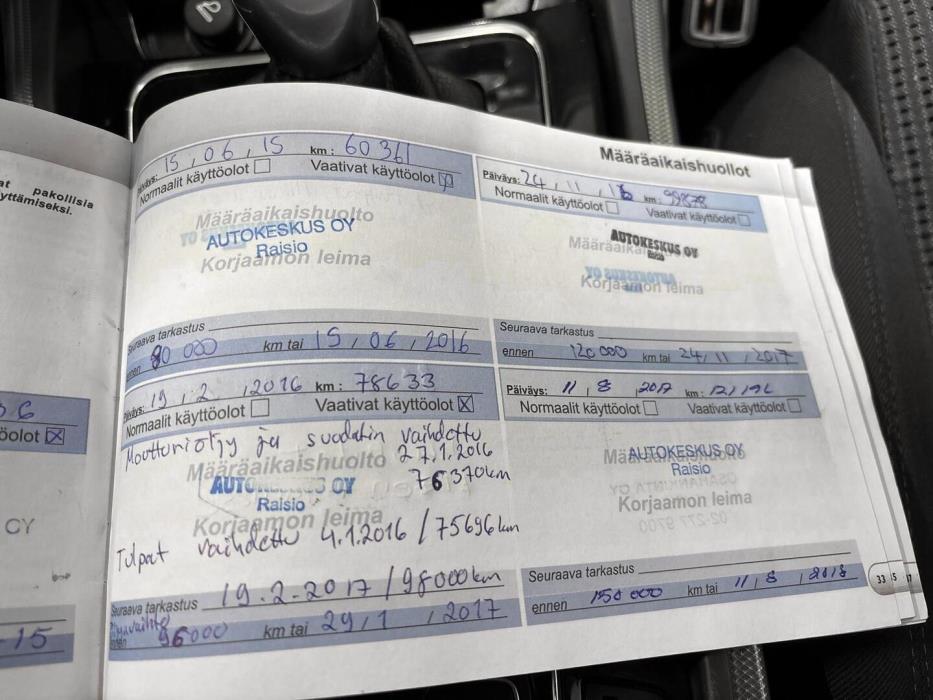 at pakollisia
yttämiseksi.
öolot ☒
CY
-15
Päiväys: 15, 06, 15 km: 60 361
Normaalit käyttöolot ☐ Vaativat käyttöolot ☒
Määräaikaishuolto
AUTOKESKUS OY
Raisio
Korjaamon leima
Seuraava tarkastus
ennen 90 000 km tai 15, 06, 2016
Päiväys: 19, 2, 2016 km: 78633
Normaalit käyttöolot ☐ Vaativat käyttöolot ☒
Moottoriöljy ja suodatin vaihdettu
27.1.2016
Määräaikaishuolto
76370km
AUTOKESKUS OY
Raisio
Korjaamon leima
Tulpat vaihdettu 4.1.2016 / 75696 km
Seuraava tarkastus 19.2.2017 / 98000km
ennen 96000 km tai 29, 1, 2017
Määräaikaishuollot
Päiväys: 24, 11, 16 km: 99878
Normaalit käyttöolot ☐ Vaativat käyttöolot ☐
AUTOKESKUS OY
Korjaamon leima
Seuraava tarkastus
ennen 120 000 km tai 24, 11, 2017
Päiväys: 11, 8, 2017 km:
Normaalit käyttöolot ☐ Vaativat käyttöolot ☐
AUTOKESKUS OY
Raisio
Korjaamon leima
02-277 9700
Seuraava tarkastus
ennen 150 000 km tai 11, 8, 2018
33